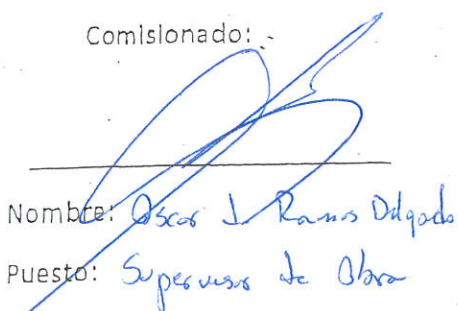 Comisionado:
Nombre: Oscar J. Ramos Delgado
Puesto: Supervisor de Obra